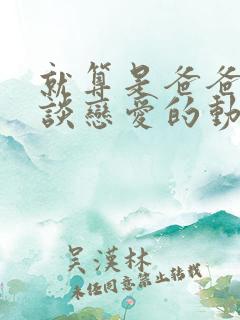 就算是爸爸
談戀愛的動
吳漢林
未經同意禁止轉載